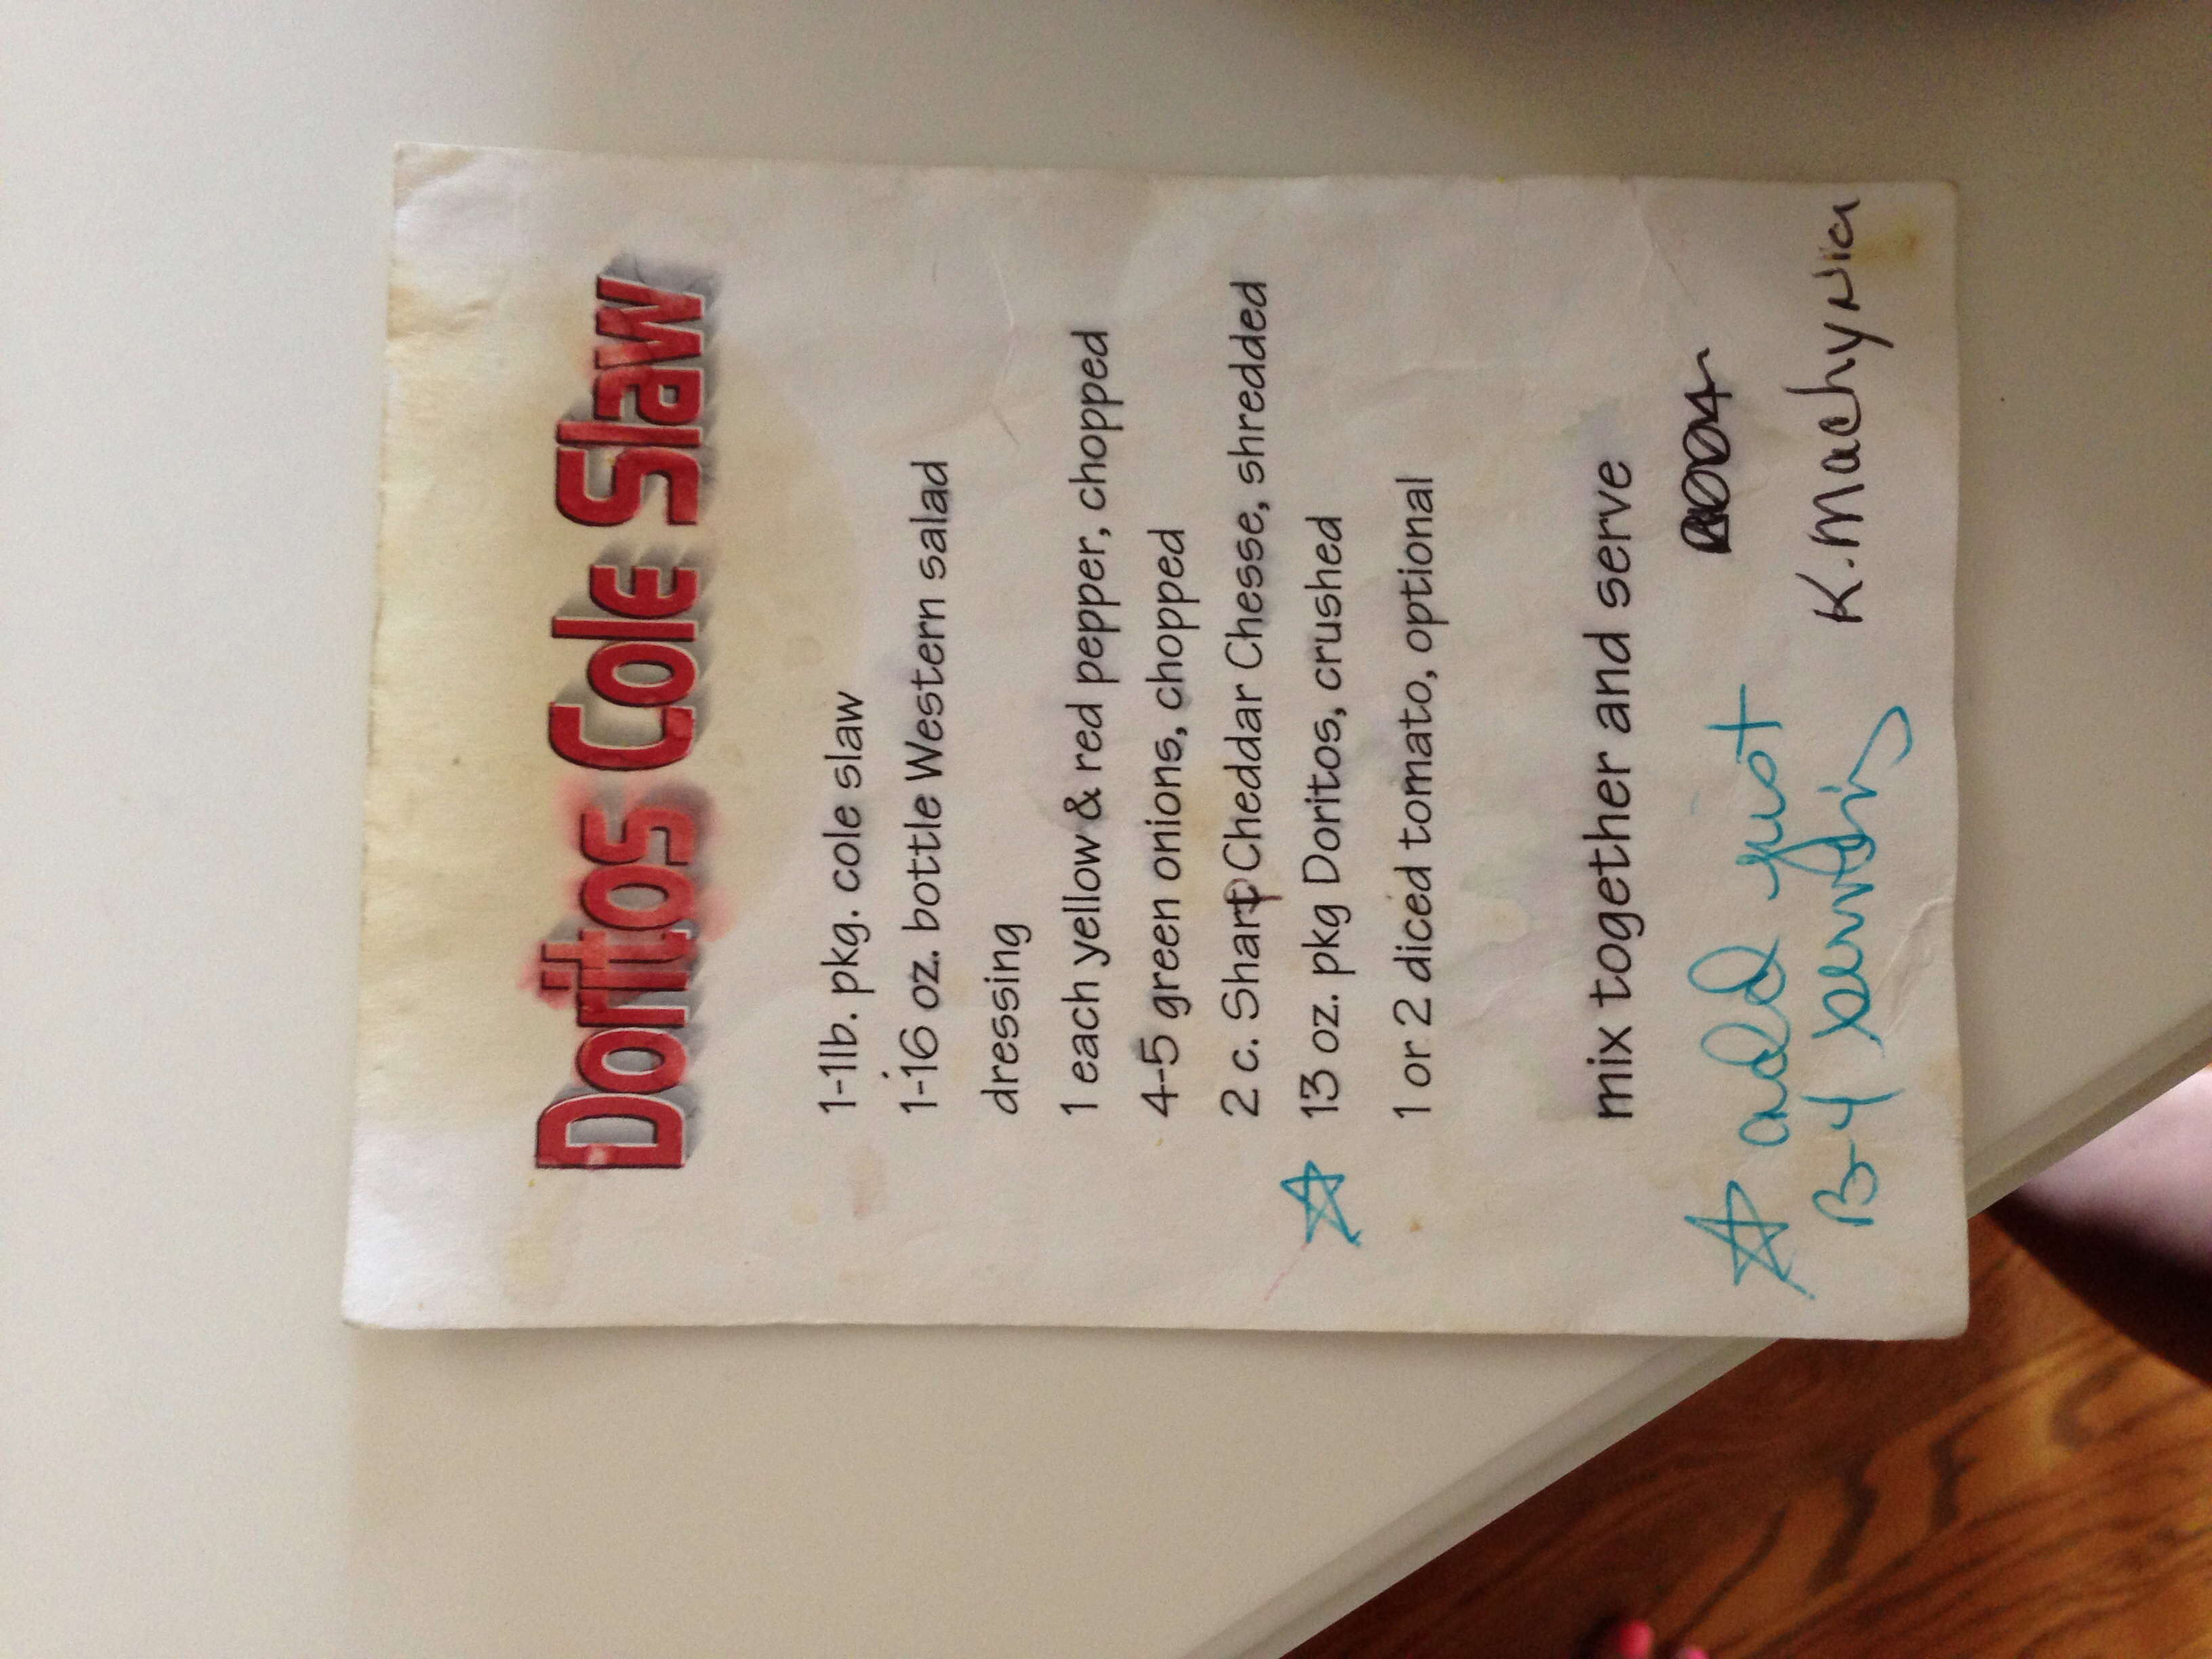 Doritos Cole Slaw
1-1lb. pkg. cole slaw
1-16 oz. bottle Western salad
dressing
1 each yellow & red pepper, chopped
4-5 green onions, chopped
2 c. Sharp Cheddar Chesse, shredded
☆ 13 oz. pkg Doritos, crushed
1 or 2 diced tomato, optional
mix together and serve
☆ add just
B-4 serving
K. Machynia